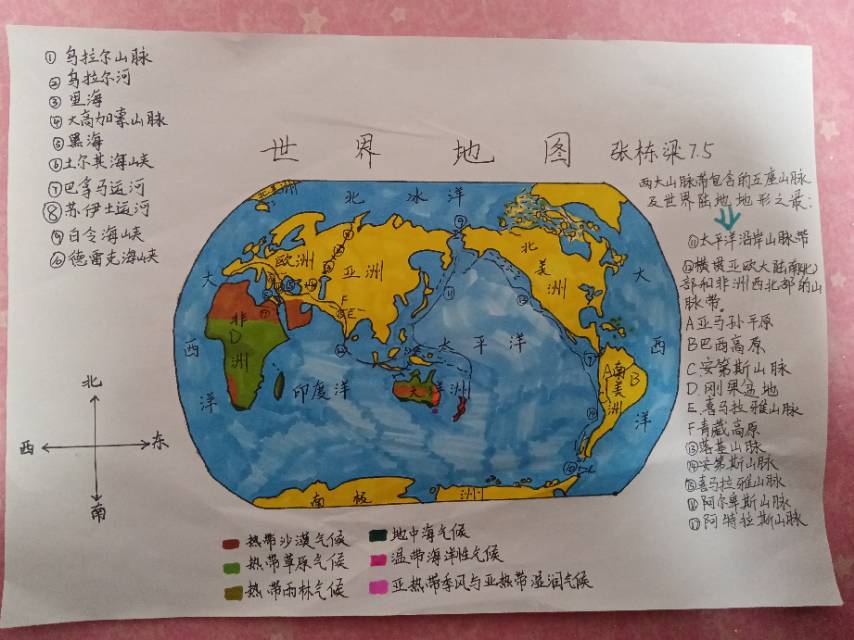 ①乌拉尔山脉
②乌拉尔河
③里海
④大高加索山脉
⑤黑海
⑥土尔其海峡
⑦巴拿马运河
⑧苏伊士运河
⑨白令海峡
⑩德雷克海峡
世界地图
张栋梁7.5
两大山脉带包含的五座山脉
及世界陆地地形之最:
⑪太平洋沿岸山脉带
⑫横贯亚欧大陆南北
部和非洲西北部的山
脉带
A亚马孙平原
B巴西高原
C安第斯山脉
D刚果盆地
E喜马拉雅山脉
F青藏高原
⑬落基山脉
⑭安第斯山脉
⑮喜马拉雅山脉
⑯阿尔卑斯山脉
⑰阿特拉斯山脉
北冰洋
欧洲
亚洲
北美洲
非洲
D
F
E
大西洋
太平洋
大西洋
印度洋
大洋洲
南美洲
A
B
C
南极洲
北
西
东
南
热带沙漠气候
热带草原气候
热带雨林气候
地中海气候
温带海洋性气候
亚热带季风与亚热带湿润气候